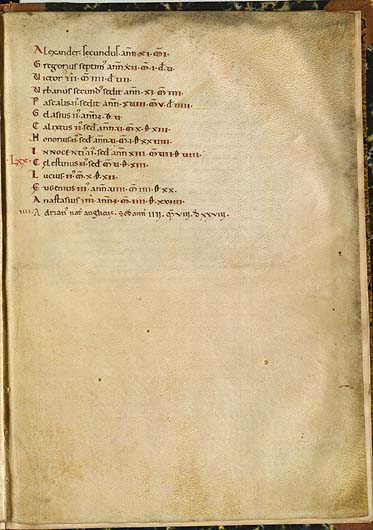 Alexander secundus. annis XI. m̄. I.
Gregorius septim᷒ ann̄. XII. m̄. I. d̄. v.
Victor III. m̄. IIII. d̄. VII.
Urbanus secund᷒ sedit ann̄. XI. m̄. IIII.
Pascalis. II. sedit. ann̄. XVIII. m̄. v. d̄. IIII.
Gelasius II. ann̄. I. d̄. v.
Calixtus. II. sed̄. ann̄. v. m̄. X. d̄. XIII.
Honorius. II. sed̄. ann̄. v. m̄. I. d̄. XXVIIII.
INNOCENTI᷒. II. sed̄. ann̄. XIII. m̄. VII. d̄. VIII.
LXX. Celestinus. II. sed̄. m̄. v. d̄. XIII.
Lucius. II. m̄. X. d̄. XII.
Eugenius III. ann̄. VIII. m̄. IIII. d̄. XX.
Anastasius IIII. ann̄. I. m̄. IIII. d̄. XXIIII.
IIII. Adrian᷒ nat᷒ anglicus. sed ann̄ IIII. m̄. VIII. d̄. XXVIII.